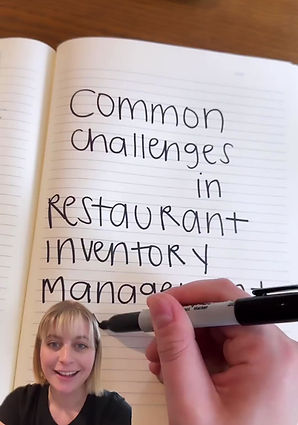 Common
challenges
in
Restaurant
inventory
management